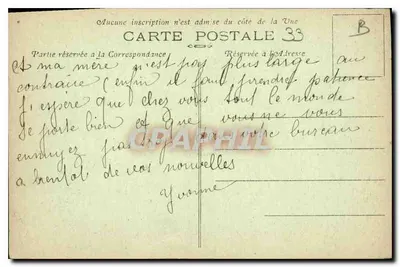 Aucune inscription n'est admise du côté de la Vue
CARTE POSTALE 33
B
Partie réservée a la Correspondance
Réservée à l'Adresse
A ma mère n'est pas plus large au
contraire (enfin il faut prendre patience
J'espère que chez vous tout le monde
se porte bien et que vous ne vous
ennuyez pas votre bureau
a bientot de vos nouvelles
Yvonne
CARTHAPHIL